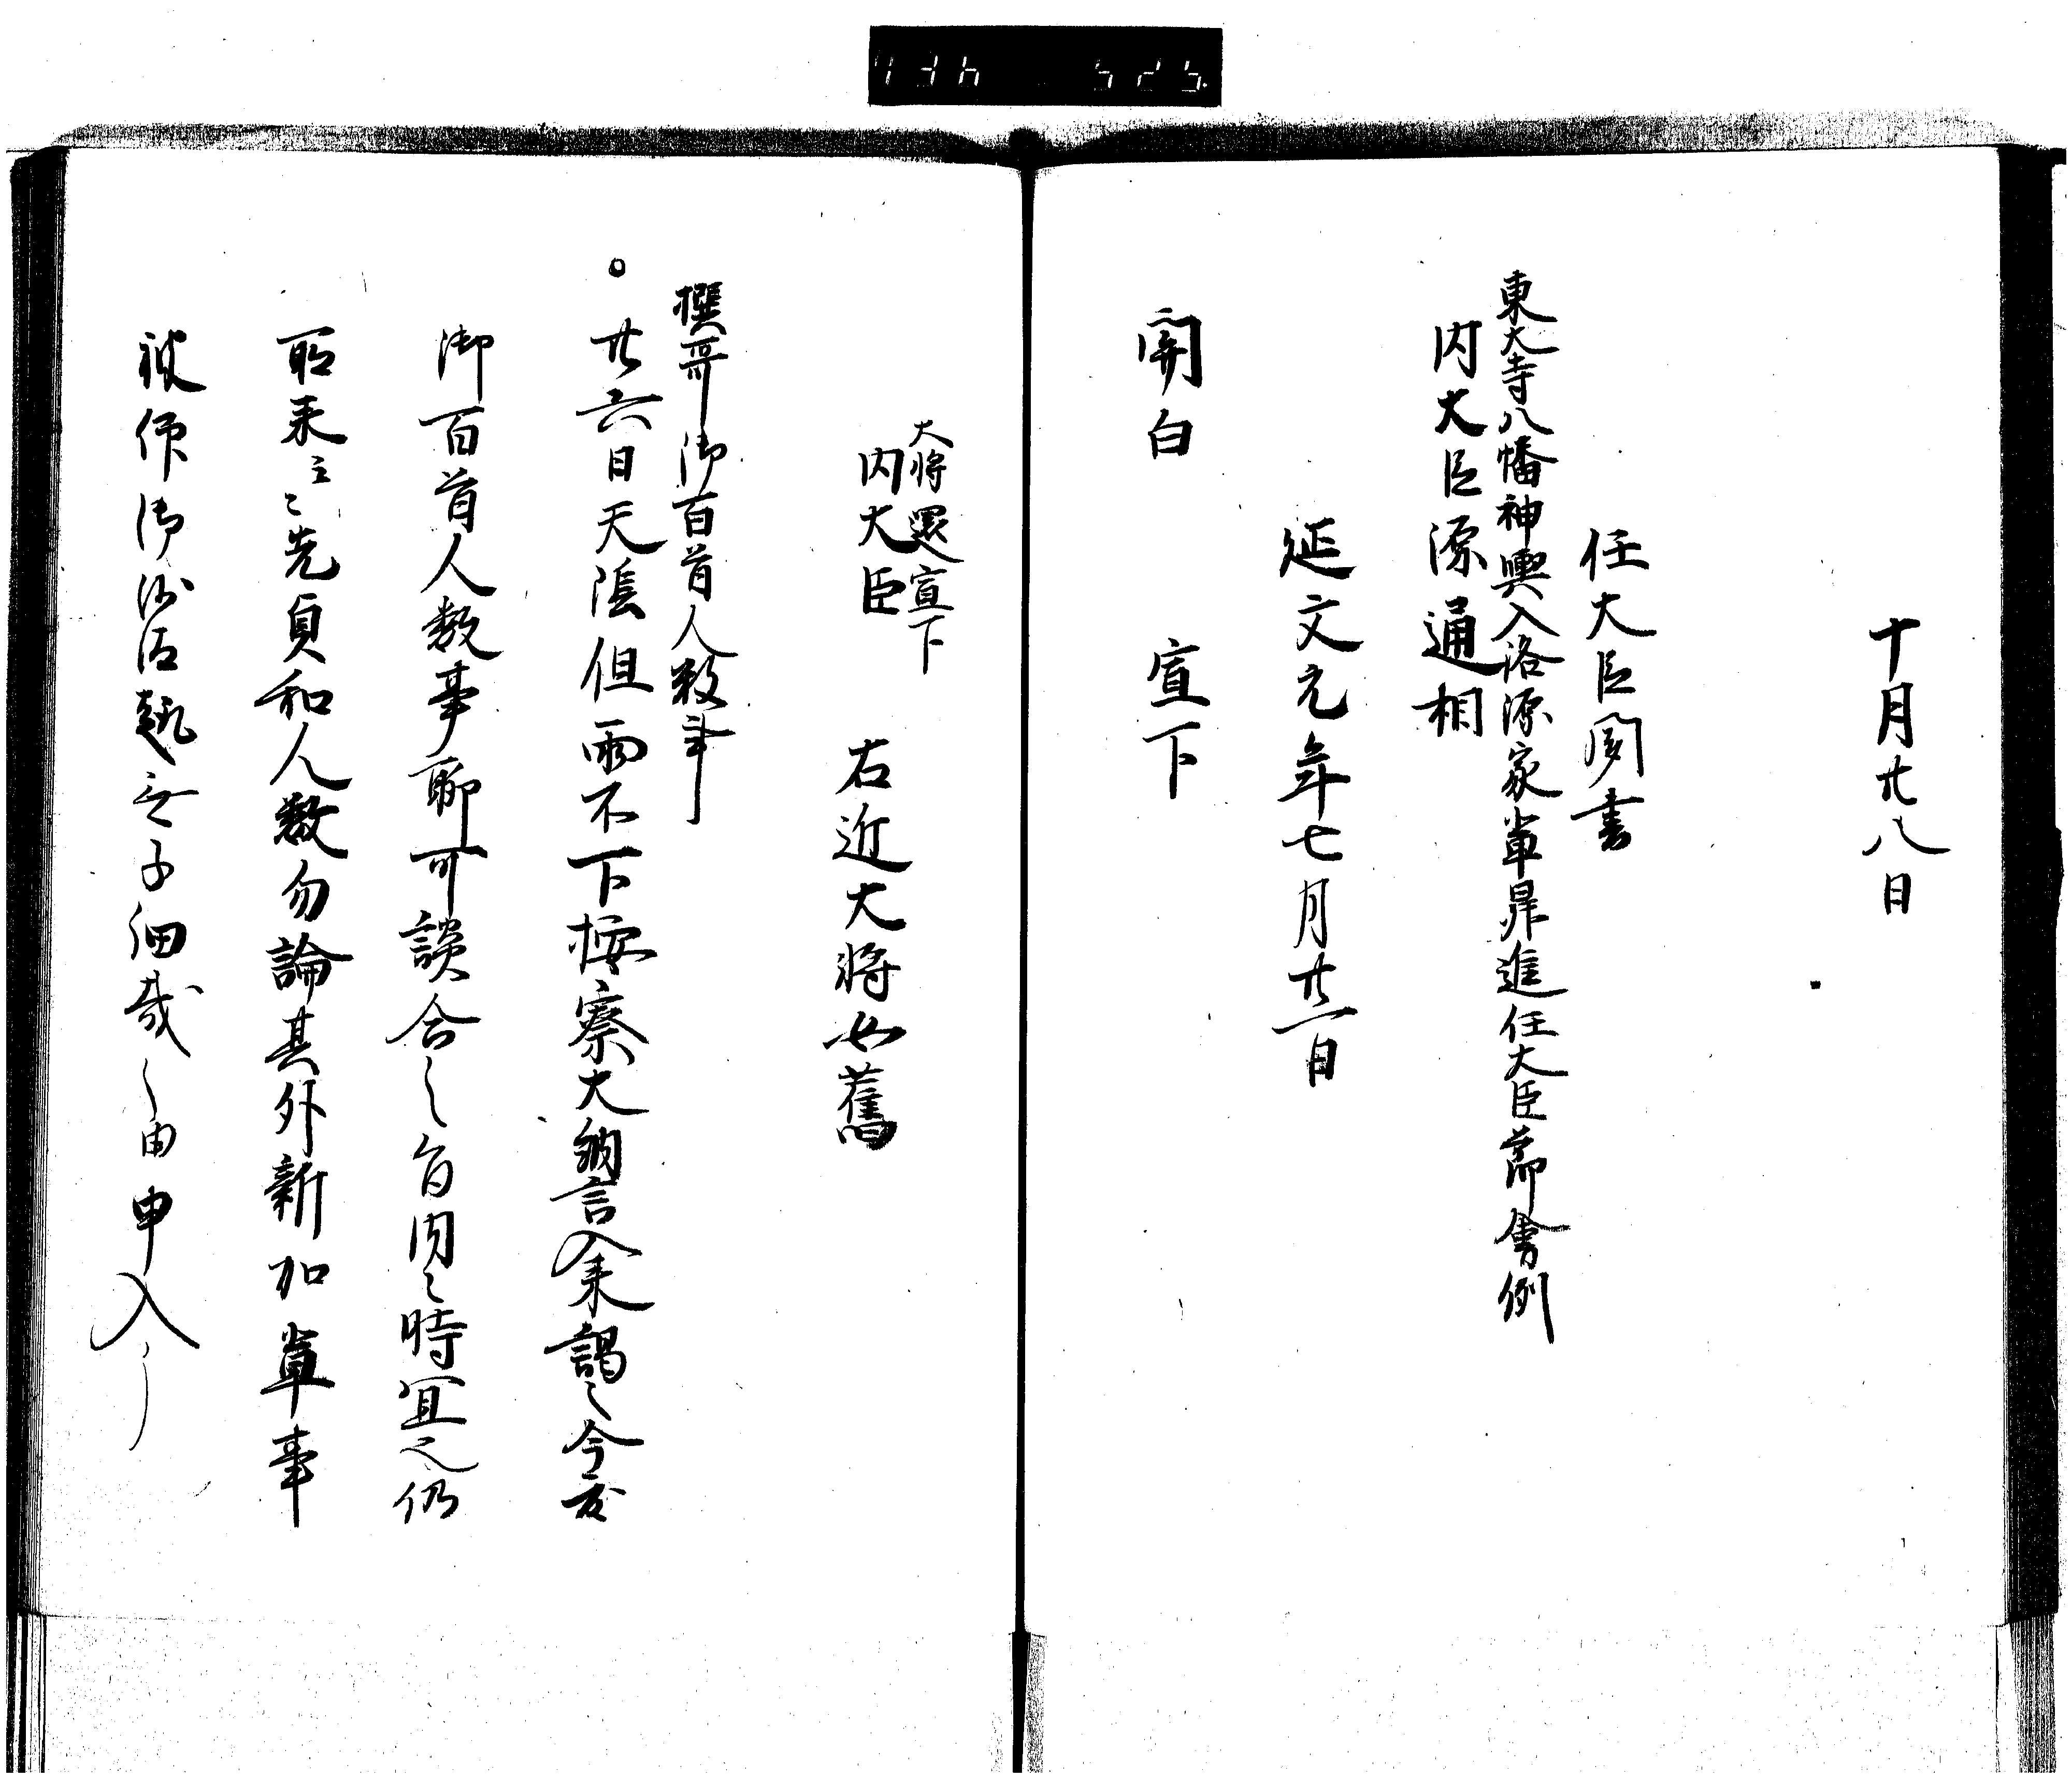 十月廿八日
任大臣聞書
東大寺八幡神輿入洛源家輩昇進任大臣節會例
内大臣源通相
延文元年七月廿一日
関白　宣下
大将還宣下
内大臣　右近大将如舊
撰哥御百首人数事
○廿六日天陰但雨不下按察大納言入来謁之今度
御百首人数事聊可談合之旨内々時宜也仍
所来云々先貞和人数勿論其外新加輩事
被仰御沙汰趣無子細哉之由申入了